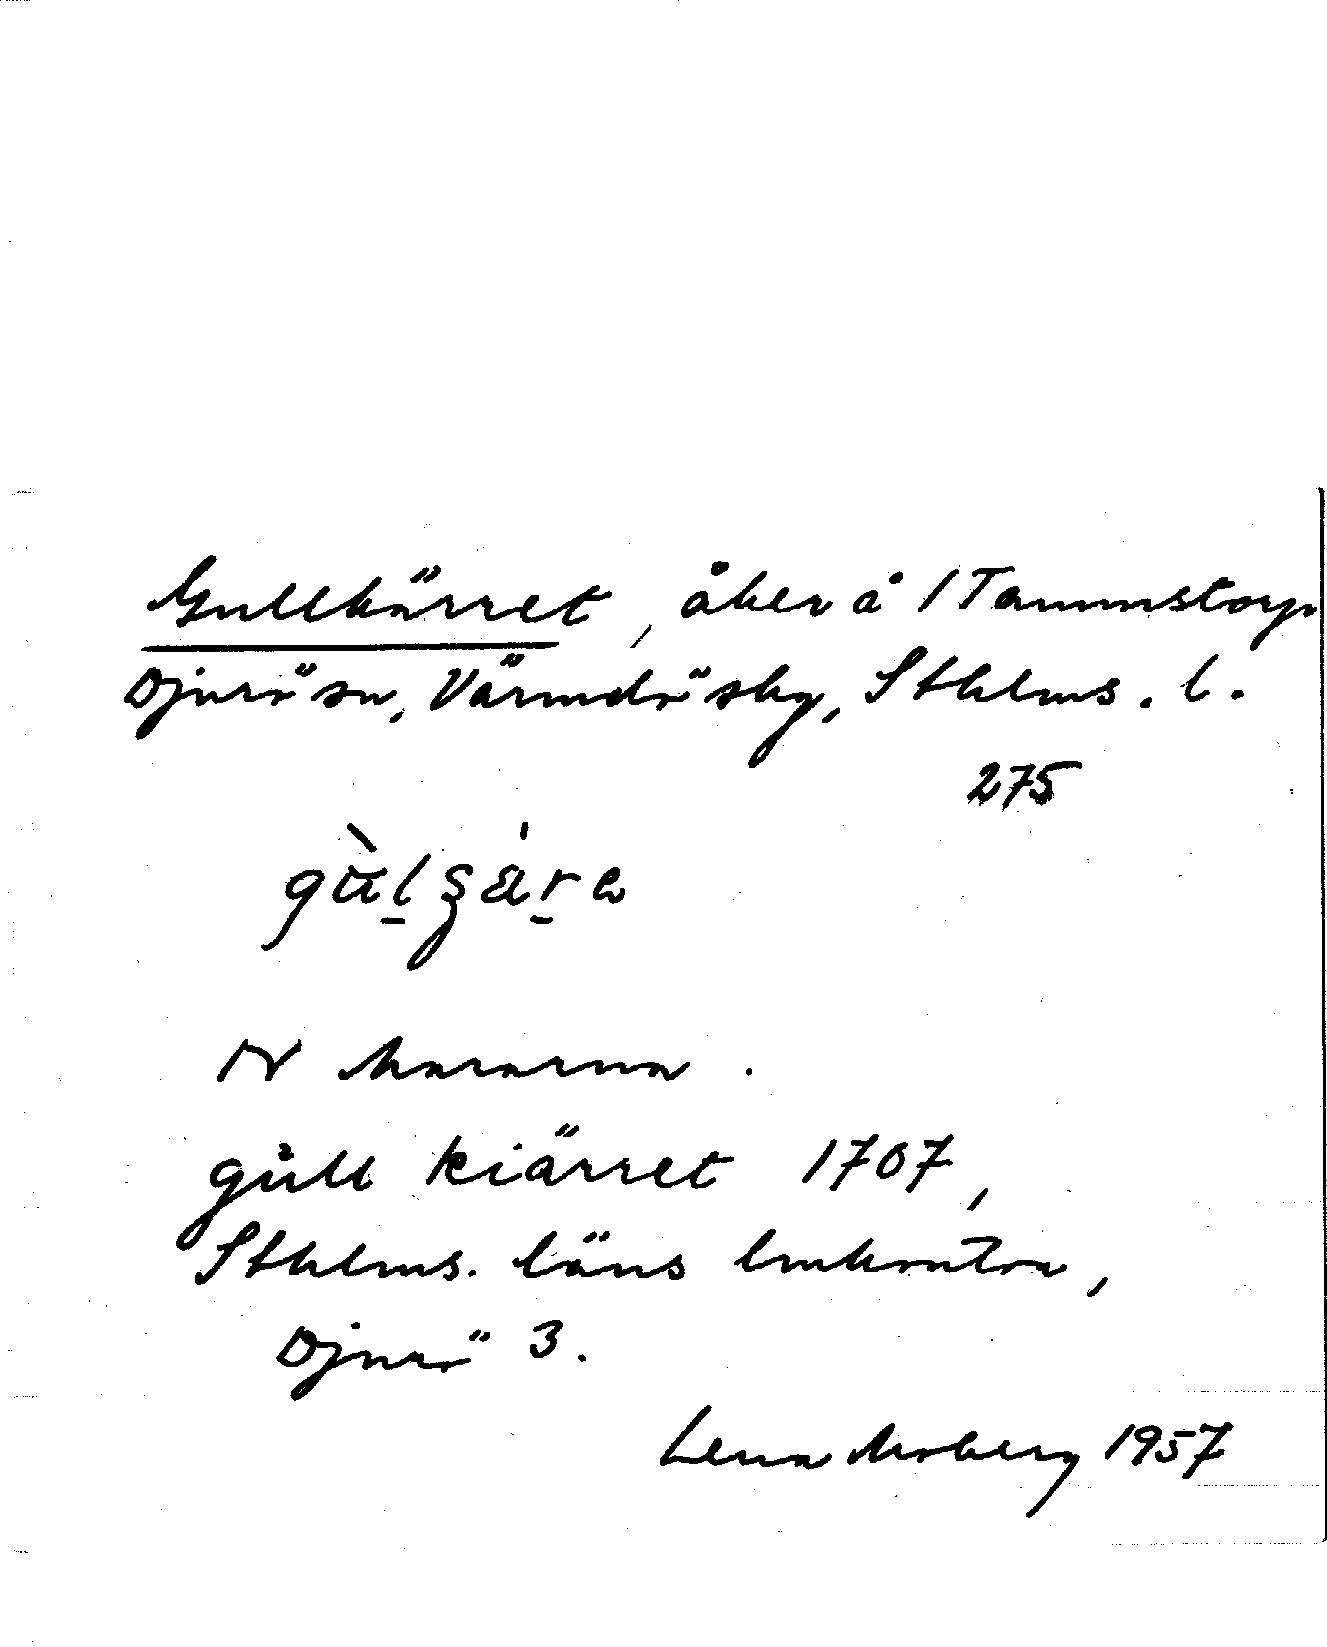 Gullkärret, åker å 1 Tammstorp
Djurö sn, Värmdö skg, Sthlms. l.
275
gu̇ll kiärret 1707,
Sthlms. läns lmkontor,
Djurö 3.
Lena Moberg 1957